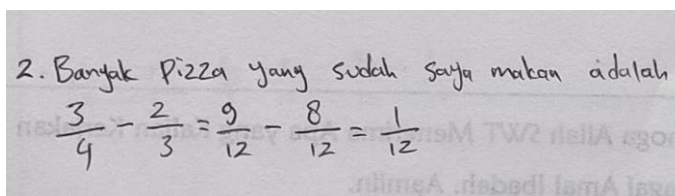 2. Banyak Pizza yang sudah saya makan adalah
3/4 - 2/3 = 9/12 - 8/12 = 1/12